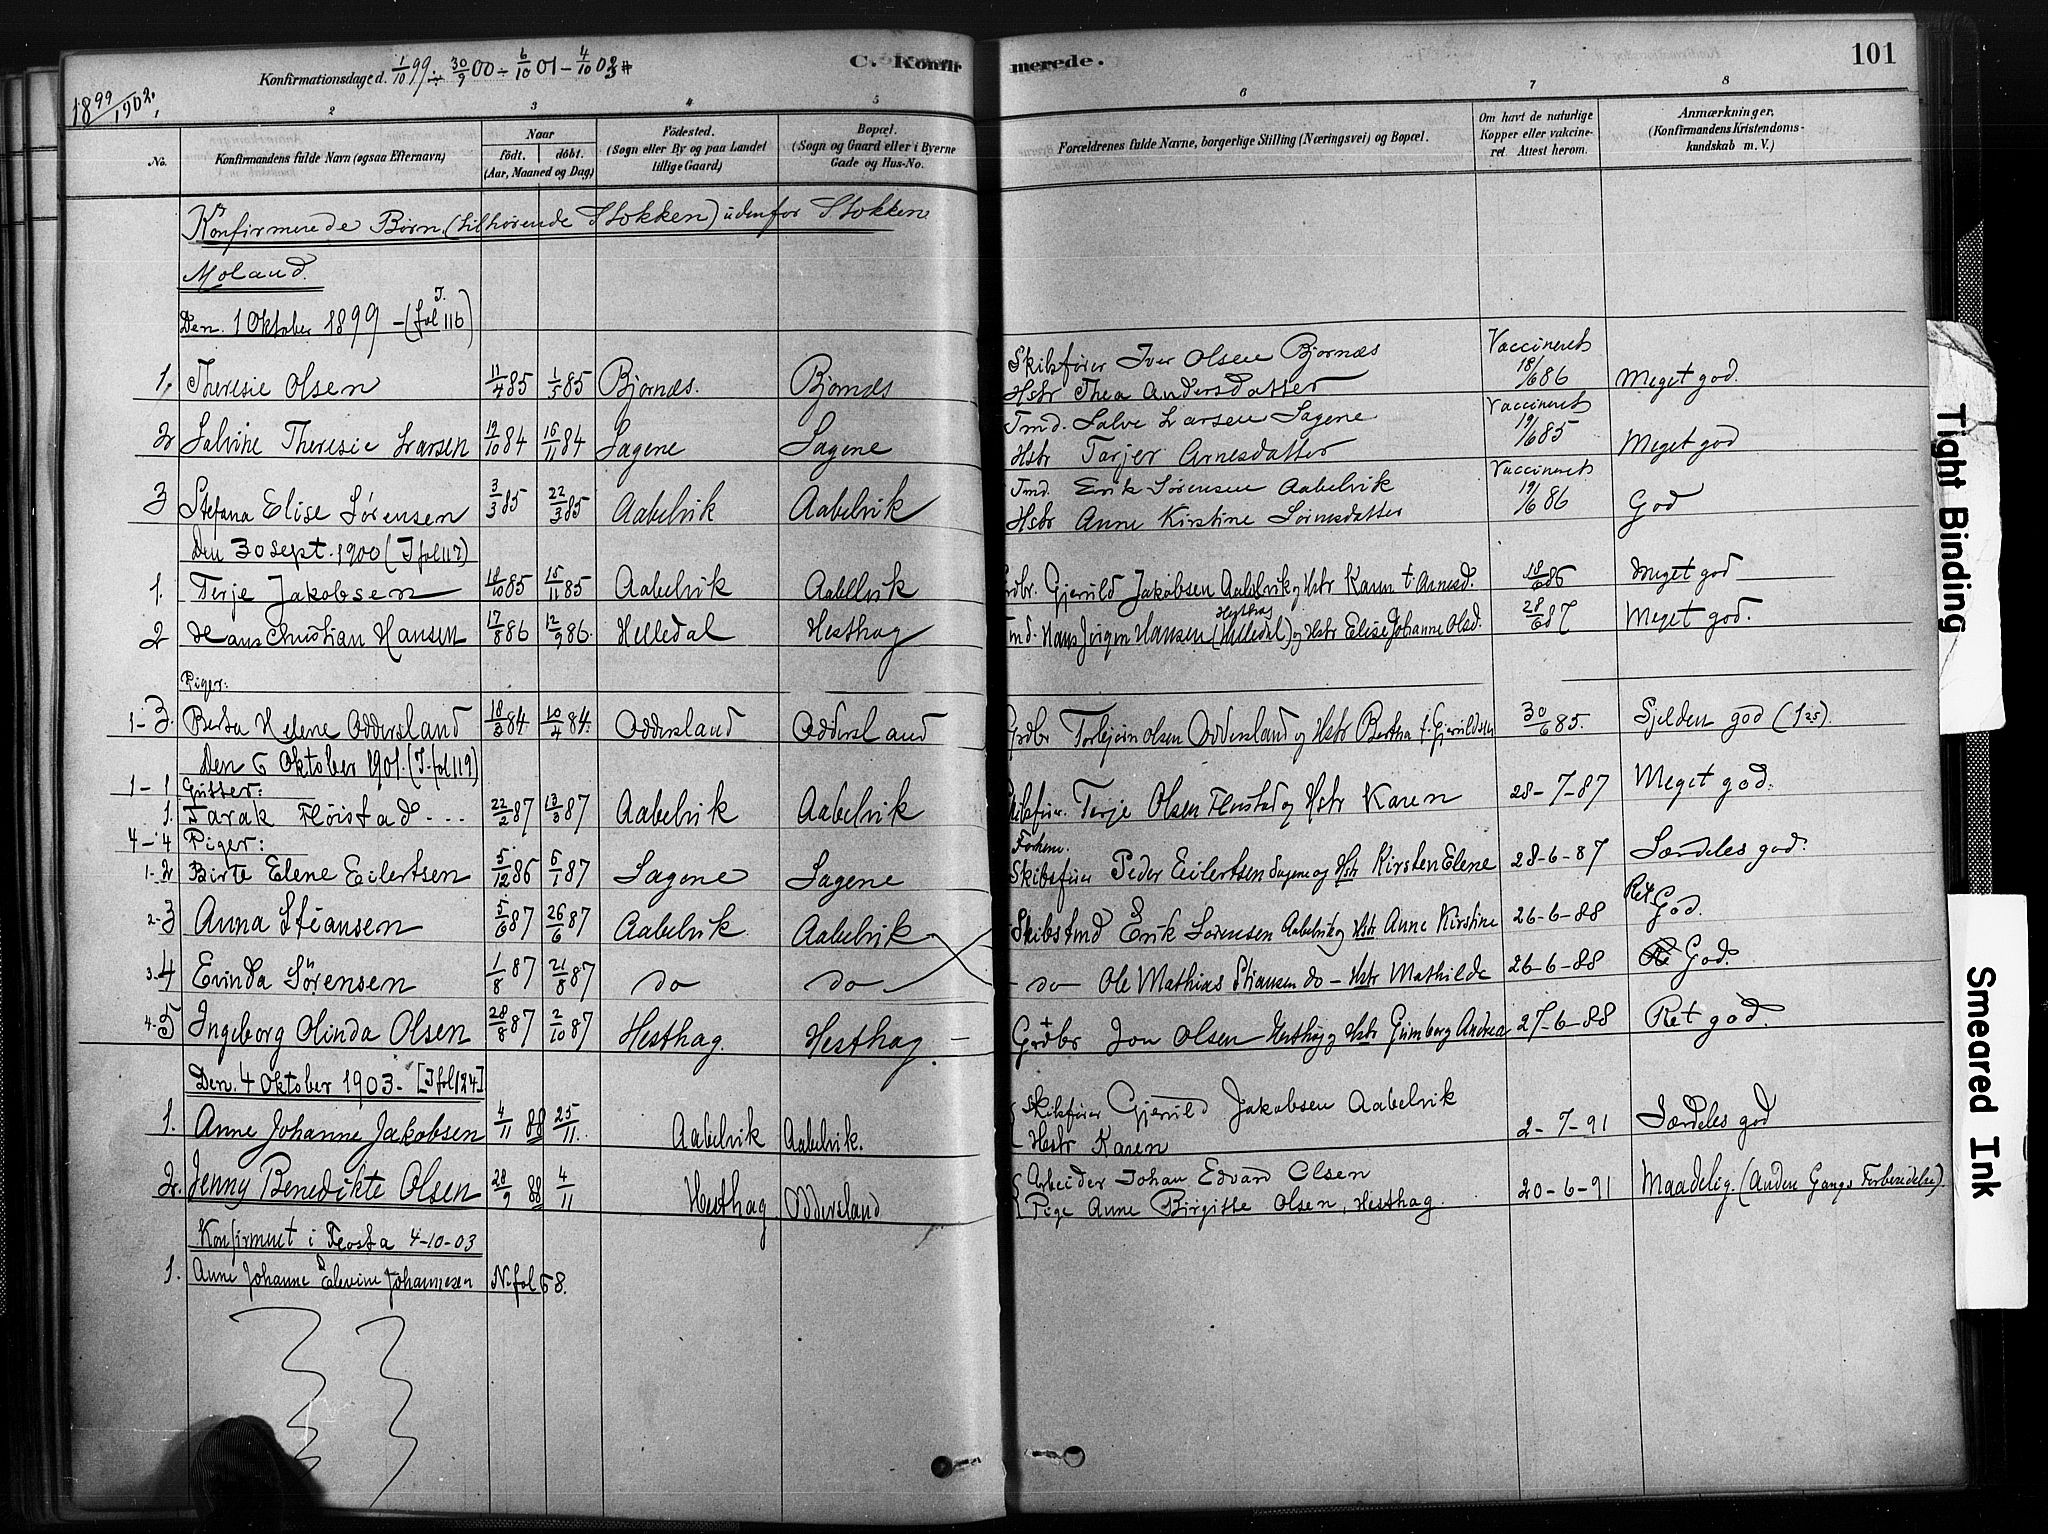 Konfirmationsdage d. 1/10 99 ÷ 30/9 00 ÷ 6/10 01 – 4/10 03
C. Konfirmerede.
101
1899/1902.
2 3 4 5 6 7 8
No.
Konfirmandens fulde Navn (ogsaa Efternavn)
Naar
födt. döbt.
(Aar, Maaned og Dag)
Födested.
(Sogn eller By og paa Landet
tillige Gaard)
Bopæl.
(Sogn og Gaard eller i Byerne
Gade og Hus-No.
Forældrenes fulde Navne, borgerlige Stilling (Næringsvei) og Bopæl.
Om havt de naturlige
Kopper eller vakcine-
ret. Attest herom.
Anmærkninger.
(Konfirmandens Kristendoms-
kundskab m. V.)
Konfirmerede Børn (tilhørende Stokken) udenfor Stokken
Moland.
Den 1 Oktober 1899 – (J. fol 116)
1, Theresie Olsen 11/4 85 1/5 85 Bjornæs. Bjornæs Skibsfører Iver Olsen Bjornæs Vaccineret
Hstr Thea Andersdatter 18/6 86 Meget god.
2 Salvine Theresie Larsen 19/10 84 16/11 84 Sagene Sagene Tmd. Salve Larsen Sagene Vaccineret
Hstr Tarjer Arnesdatter 19/6 85 Meget god
3 Stefana Elise Sørensen 3/3 85 22/3 85 Aabelvik Aabelvik Tmd. Erik Sørensen Aabelvik Vaccineret
Hstr Anne Kirstine Sørnesdatter 19/6 86 God
Den 30 Sept. 1900 (J fol 117)
1. Terje Jakobsen 18/10 85 15/11 85 Aabelvik Aabelvik Grdbr. Gjeruld Jakobsen Aabelvik og Hstr Karen t. Arnesd. 18/6 86 Meget god
2 Hans Christian Hansen 17/8 86 12/9 86. Helledal Hesthag Tmd. Hans Jörgen Hansen (Helledal) Hesthag og Hstr Elise Johanne Olsd. 28/6 87 Meget god.
Piger:
1-3. Berta Helene Oddersland 18/3 84 10/4 84. Oddersland Oddersland Grdbr Torbjörn Olsen Oddersland og Hstr Bertha f. Gjeruldsen 30/6 85. Sjelden god (1,25).
Den 6 Oktober 1901. (J. fol 119)
1-1 Gutter:
1. Tarak Fløistad - - - 22/2 87 13/3 87 Aabelvik Aabelvik Skibsfører. Terje Olsen Fløistad og Hstr Karen 28-7-87 Meget god.
4-4 Piger:
1-2 Birte Elene Eilertsen 5/12 86 6/1 87 Sagene Sagene Forhenv. Skibsfører Peder Eilertsen Sagene og Hstr Kirsten Elene 28-6-87 Særdeles god.
2-3 Anna Stiansen 5/6 87 26/6 87 Aabelvik. Aabelvik Skibstmd Erik Sørensen Aabelvik og Hstr Anne Kirstine 26-6-88 Ret God.
3-4 Evinda Sörensen 1/8 87 21/8 87 do do – do – Ole Mathias Stiansen do – Hstr Mathilde 26-6-88 God.
4-5 Ingeborg Olinda Olsen 28/8 87 2/10 87 Hesthag. Hesthag. – Grdbr Jon Olsen Hesthag og Hstr Gunborg Andrea 27-6-88 Ret god.
Den. 4 Oktober 1903 - [J fol 124]
1. Anne Johanne Jakobsen 4/11 88 25/11. Aabelvik Aabelvik. Skibsfører Gjeruld Jakobsen Aabelvik
Hstr Karen 2-7-91 Særdeles god
2. Jenny Benedikte Olsen 28/9 88 4/11 Hesthag Oddersland Arbeider Johan Edvard Olsen
Pige Anne Birgitte Olsen, Hesthag. 20-6-91 Maadelig. (Anden Gangs Forberedelse).
Konfirmeret i Trosta 4-10-03
1. Anne Johanne Elevine Johannesen N. fol 58.
Tight Binding
Smeared Ink